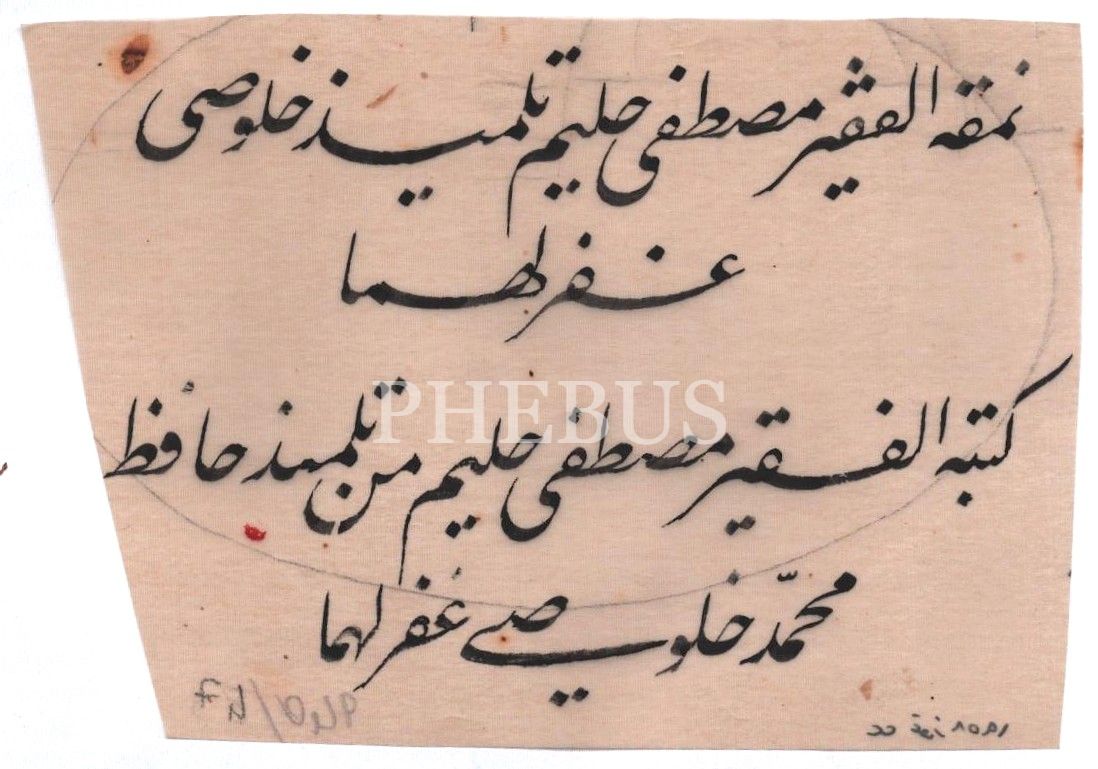 نمقه الفقير مصطفى حليم تلميذ خلوصى
غفر لهما
PHEBUS
كتبه الفقير مصطفى حليم من تلميذ حافظ
محمّد خلوصى غُفر لهما